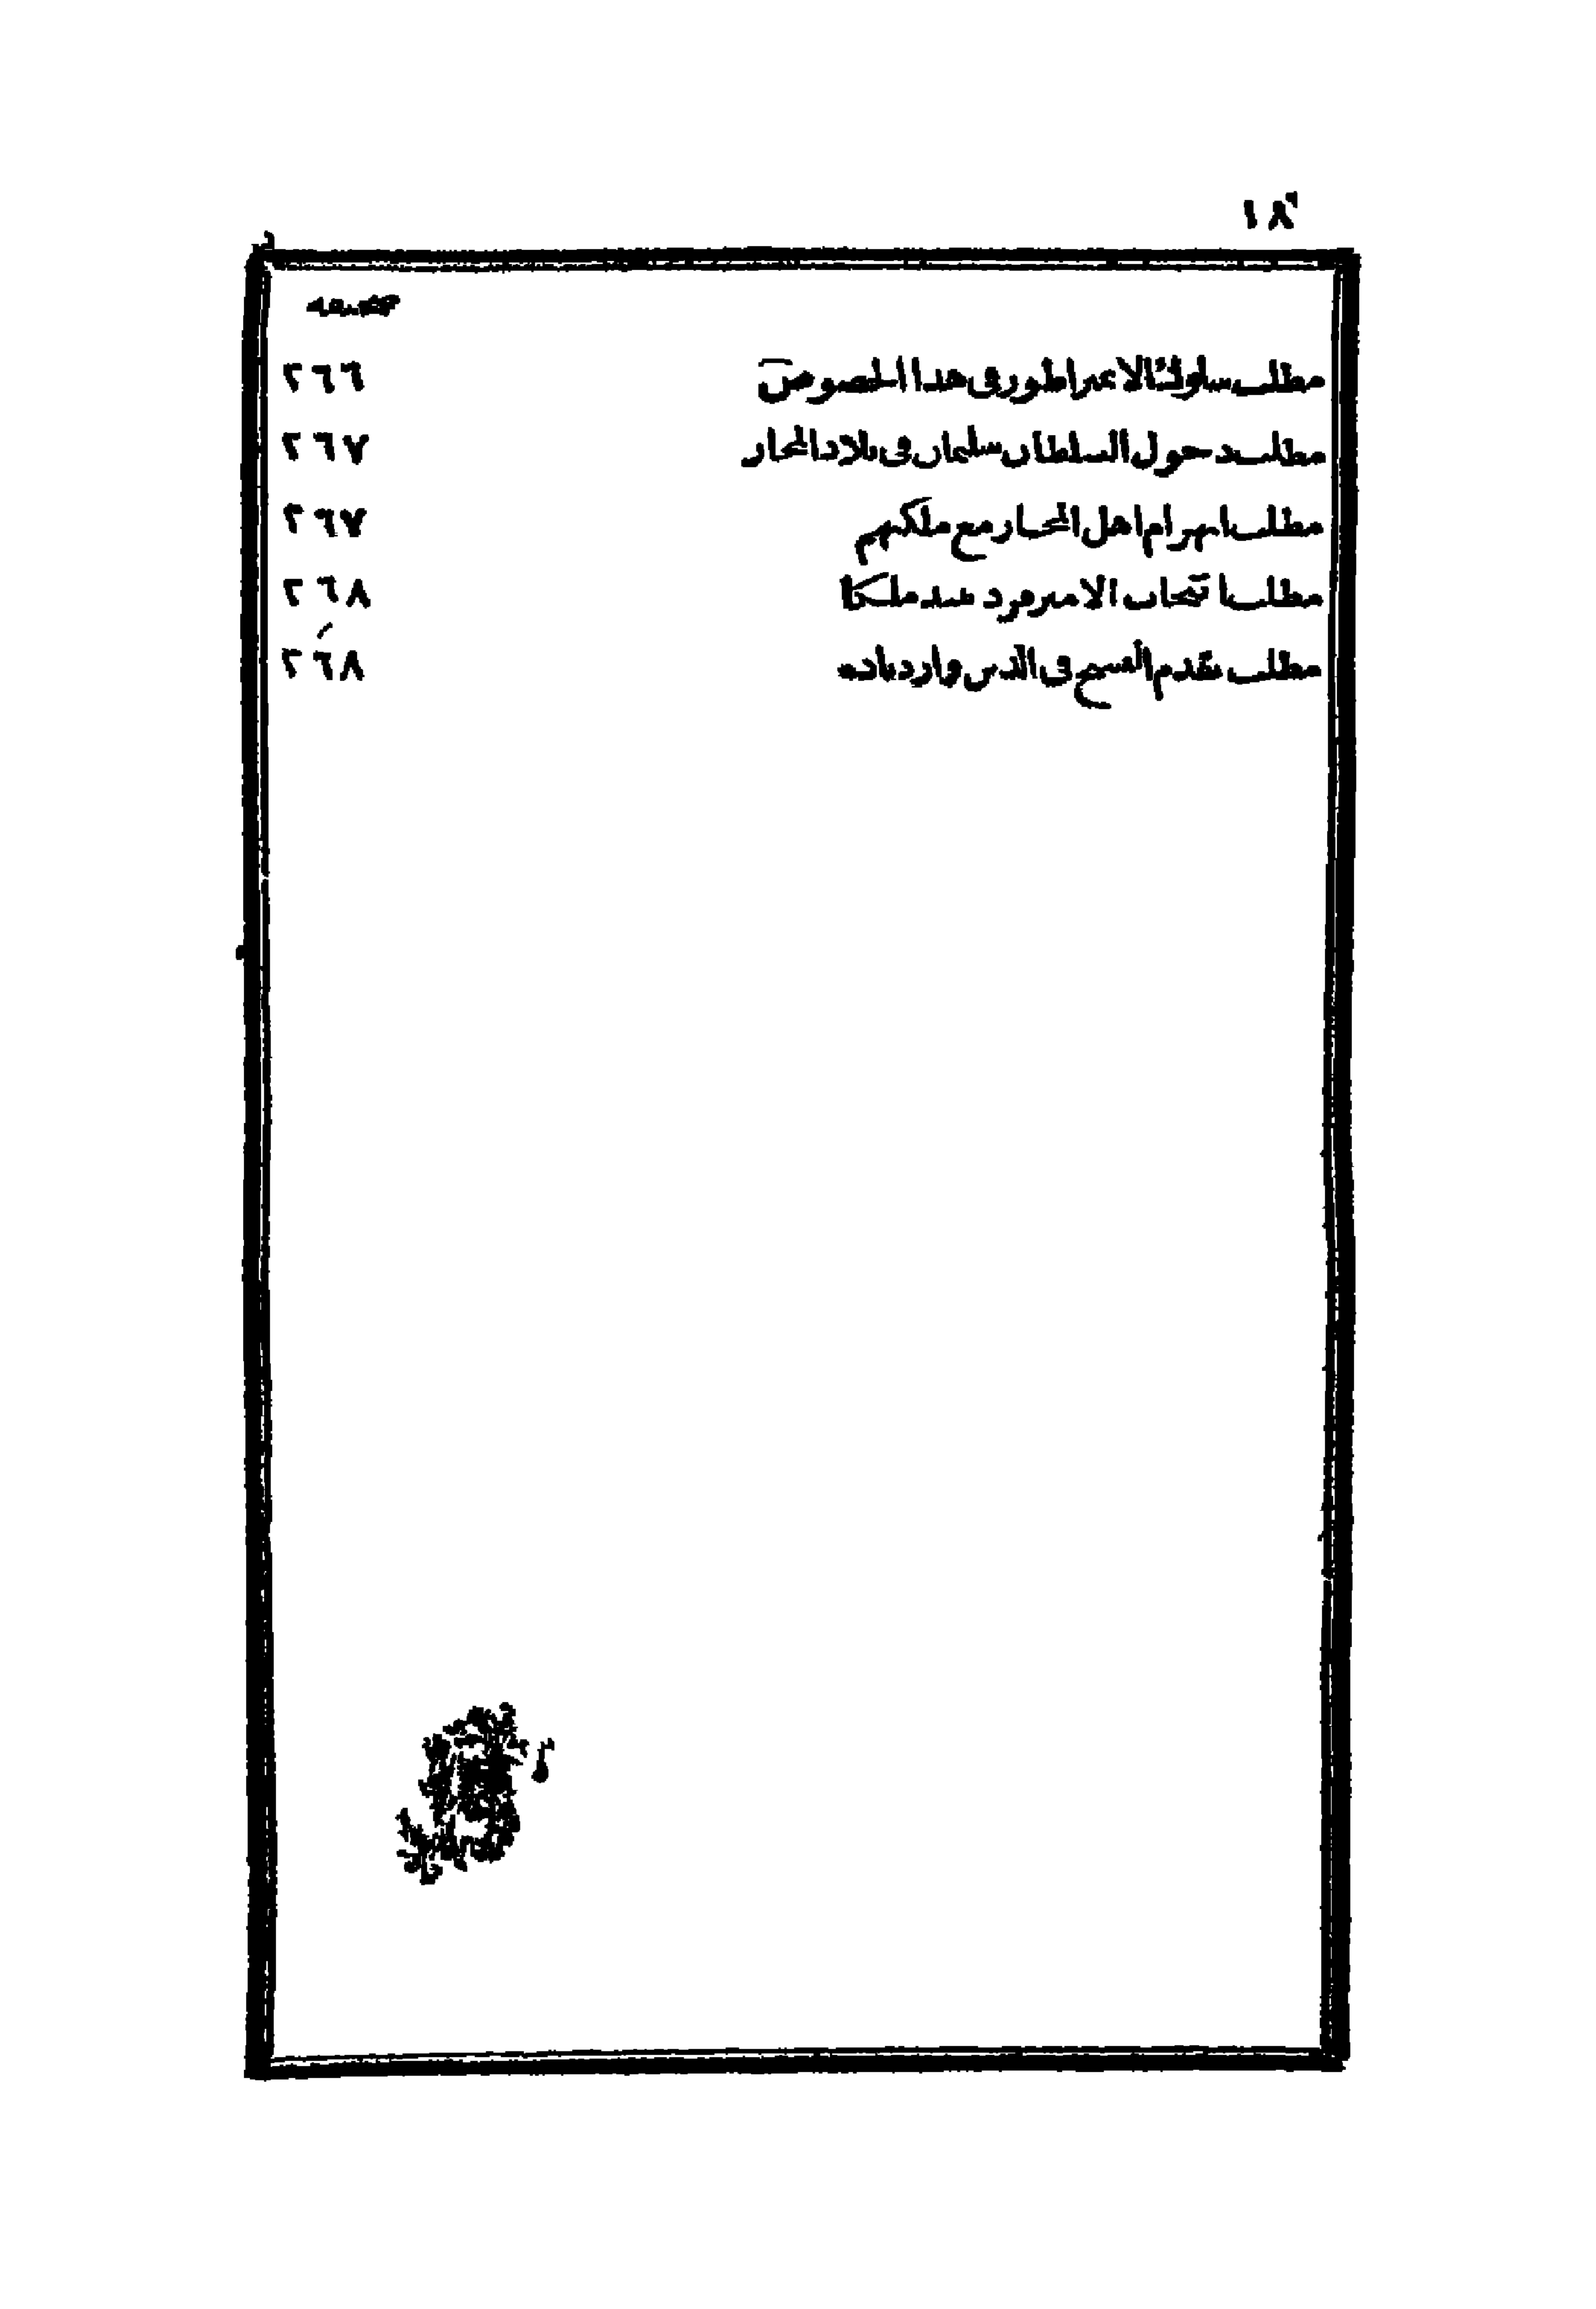 ١٨
صحيفه
مطلب سلوك الامبراطور فى هذا الخصوص ٢٦٦
مطلب دخول السلطان سليمان فى بلاد المجار ٢٦٧
مطلب انهزام اهل المجار مع ملكهم ٢٦٧
مطلب انتخاب الامير فردينند ملكا ٢٦٨
مطلب تقدم القسيح فى الدين وازدياده ٢٦٨